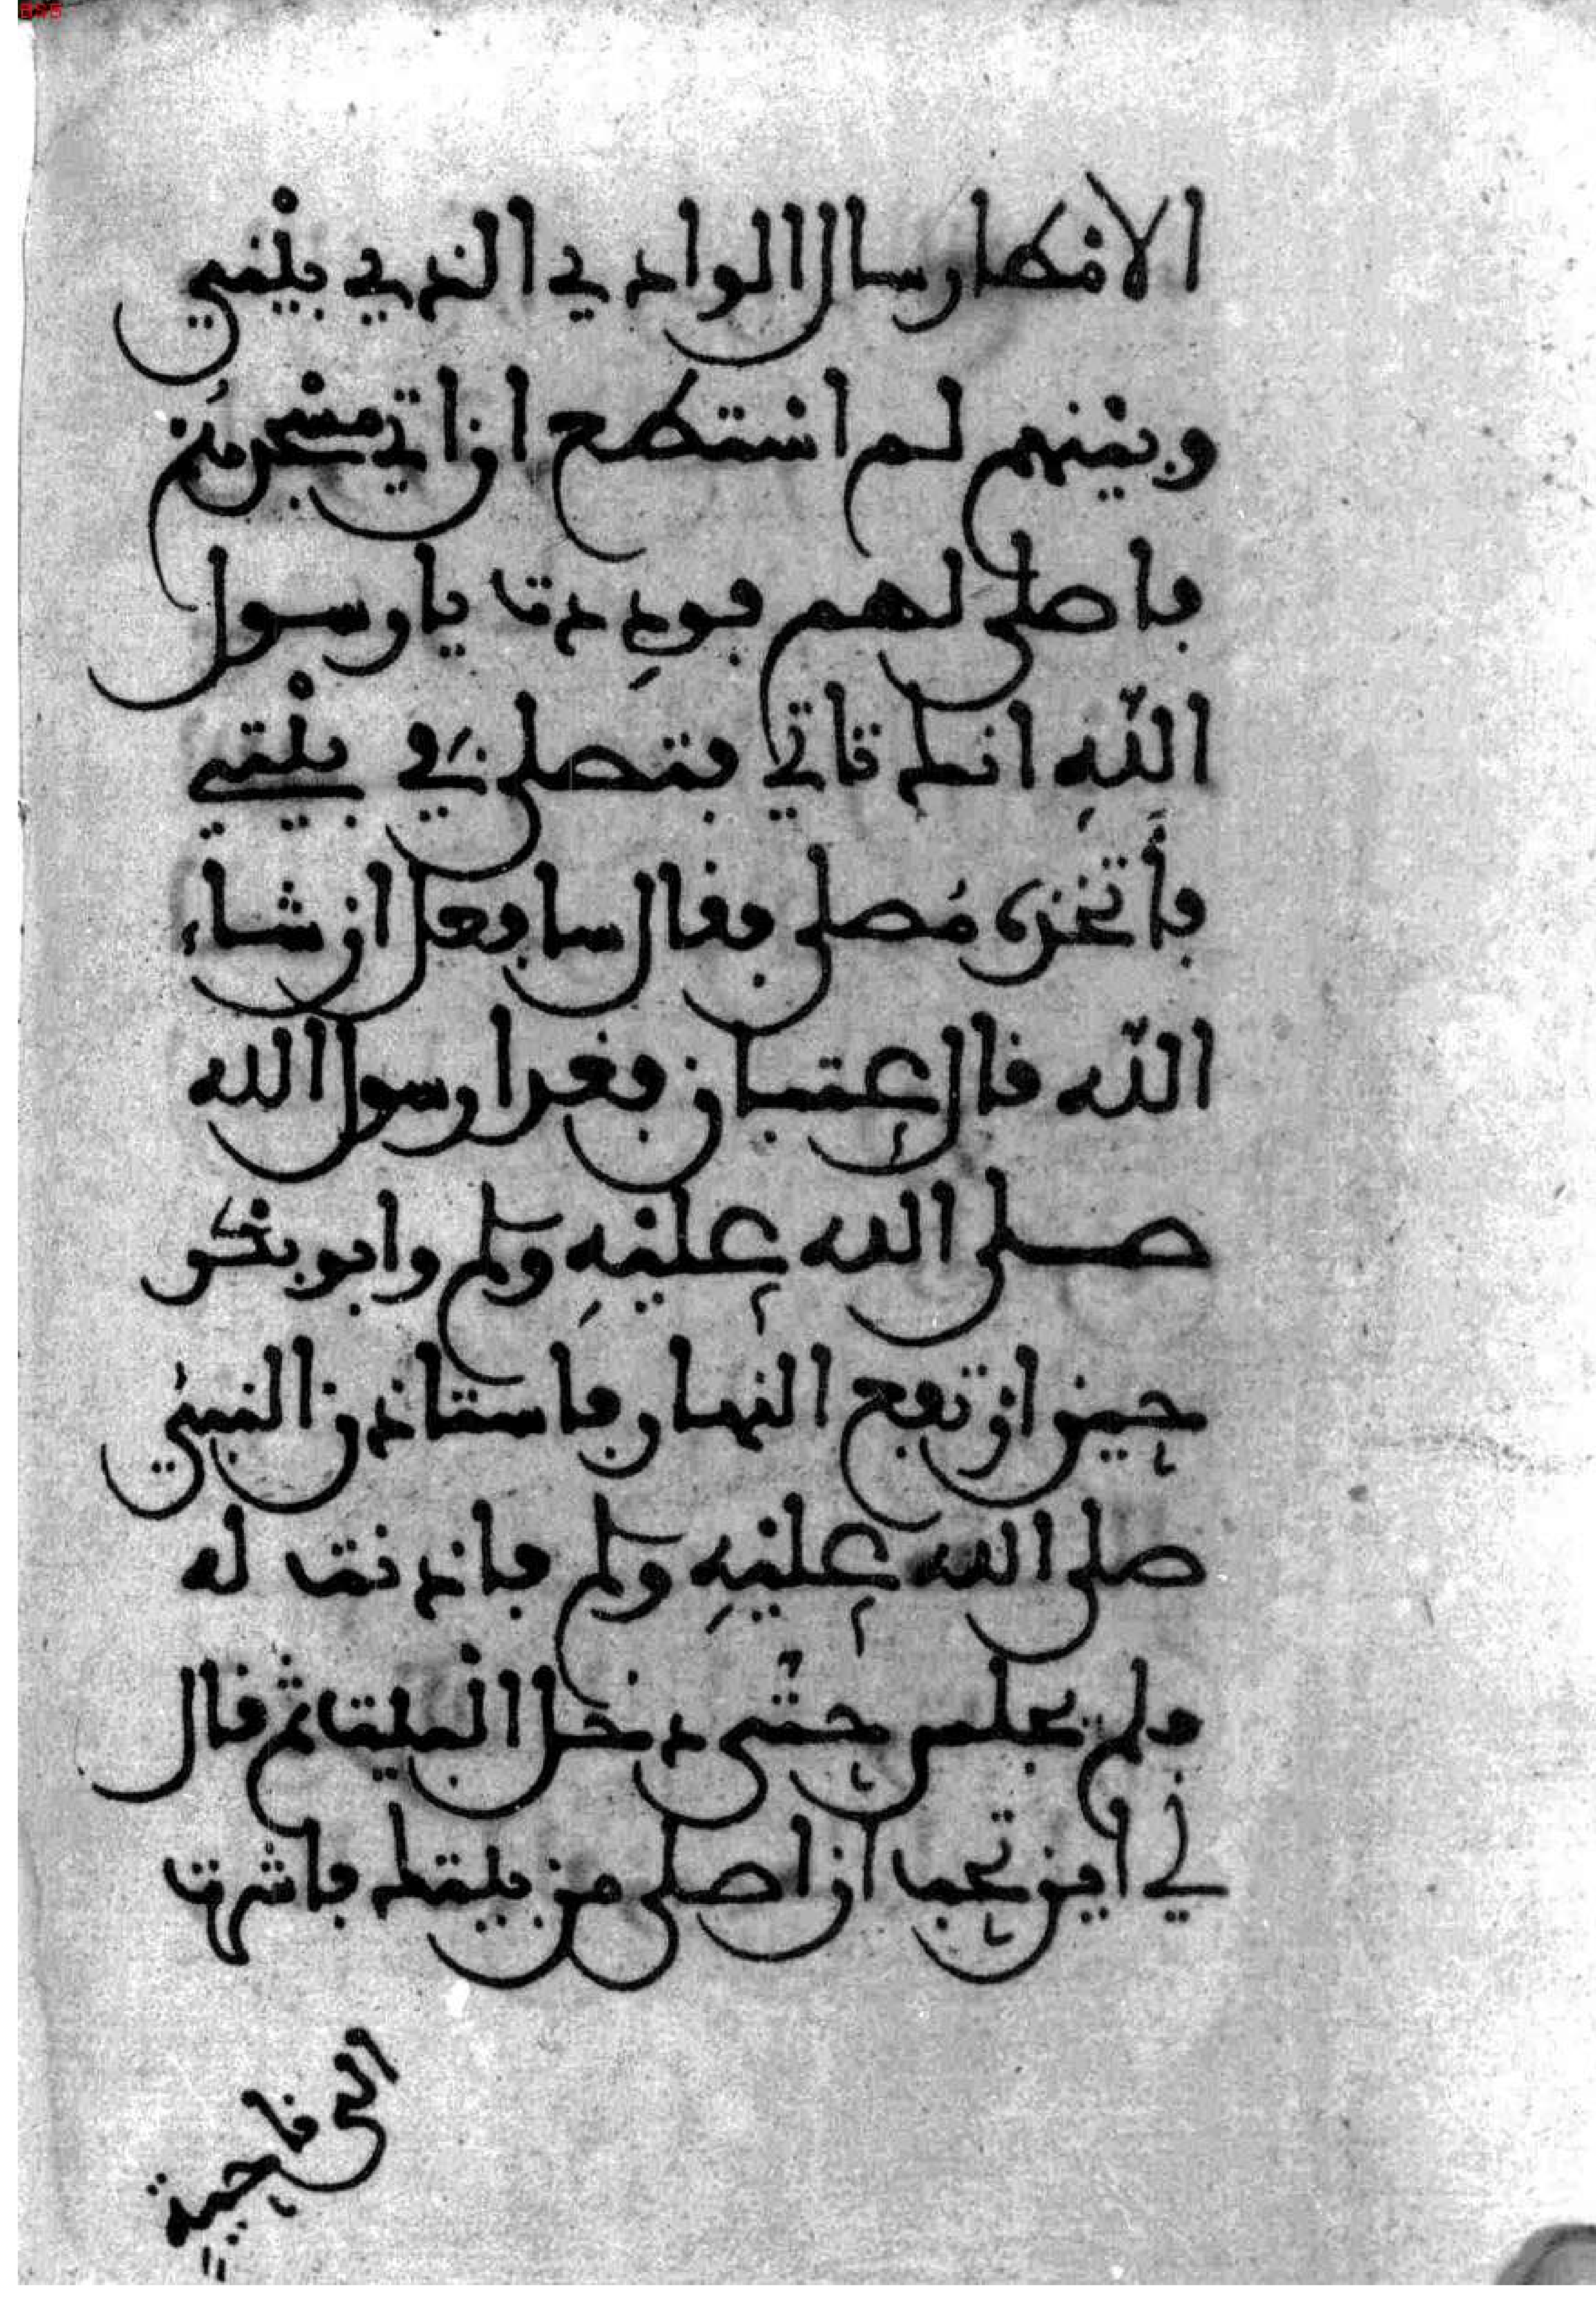 الامْطار سال الوادي الذي بيْني
وبيْنهم لم اسْتطع ان اتي مسْجدهُم
فاصلي لهم فوددِت يا رسول
اللّهِ انك تاتي فتصلي في بيْتي
فأَتخذه مُصلى فقال سافعل ان شاء
اللّه قال عتبان فغدا رسول الله
صلى الله عليْهِ وسلم وابو بكْر
حين ارتفع النهار فاستاذن النبيْ
صلى الله عليْهِ وسلم فاذنت له
فلم يجلس حتّى دخل الْبيت ثم قال
لي اين تحب ان اصلي من بيتك فاشرت
الى ناحية